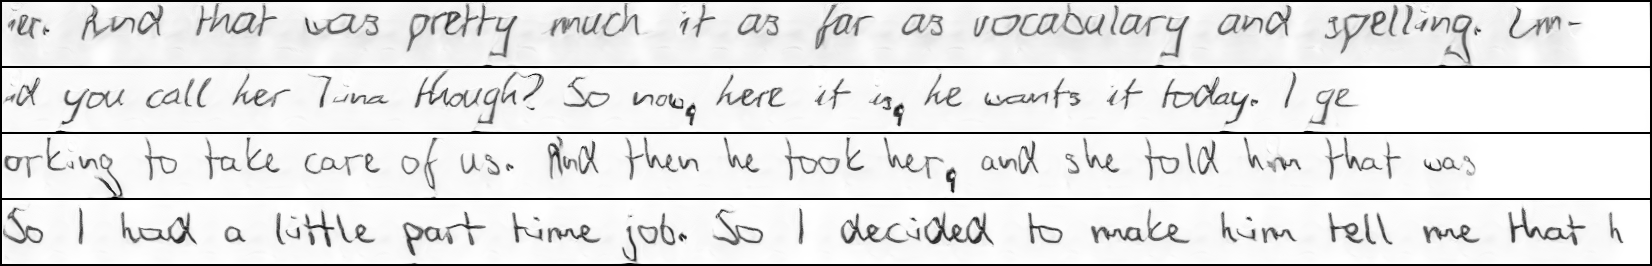 ier. And that was pretty much it as far as vocabulary and spelling. Um-
id you call her Tina though? So now, here it is, he wants it today. I ge
orking to take care of us. And then he took her, and she told him that was
So I had a little part time job. So I decided to make him tell me that h